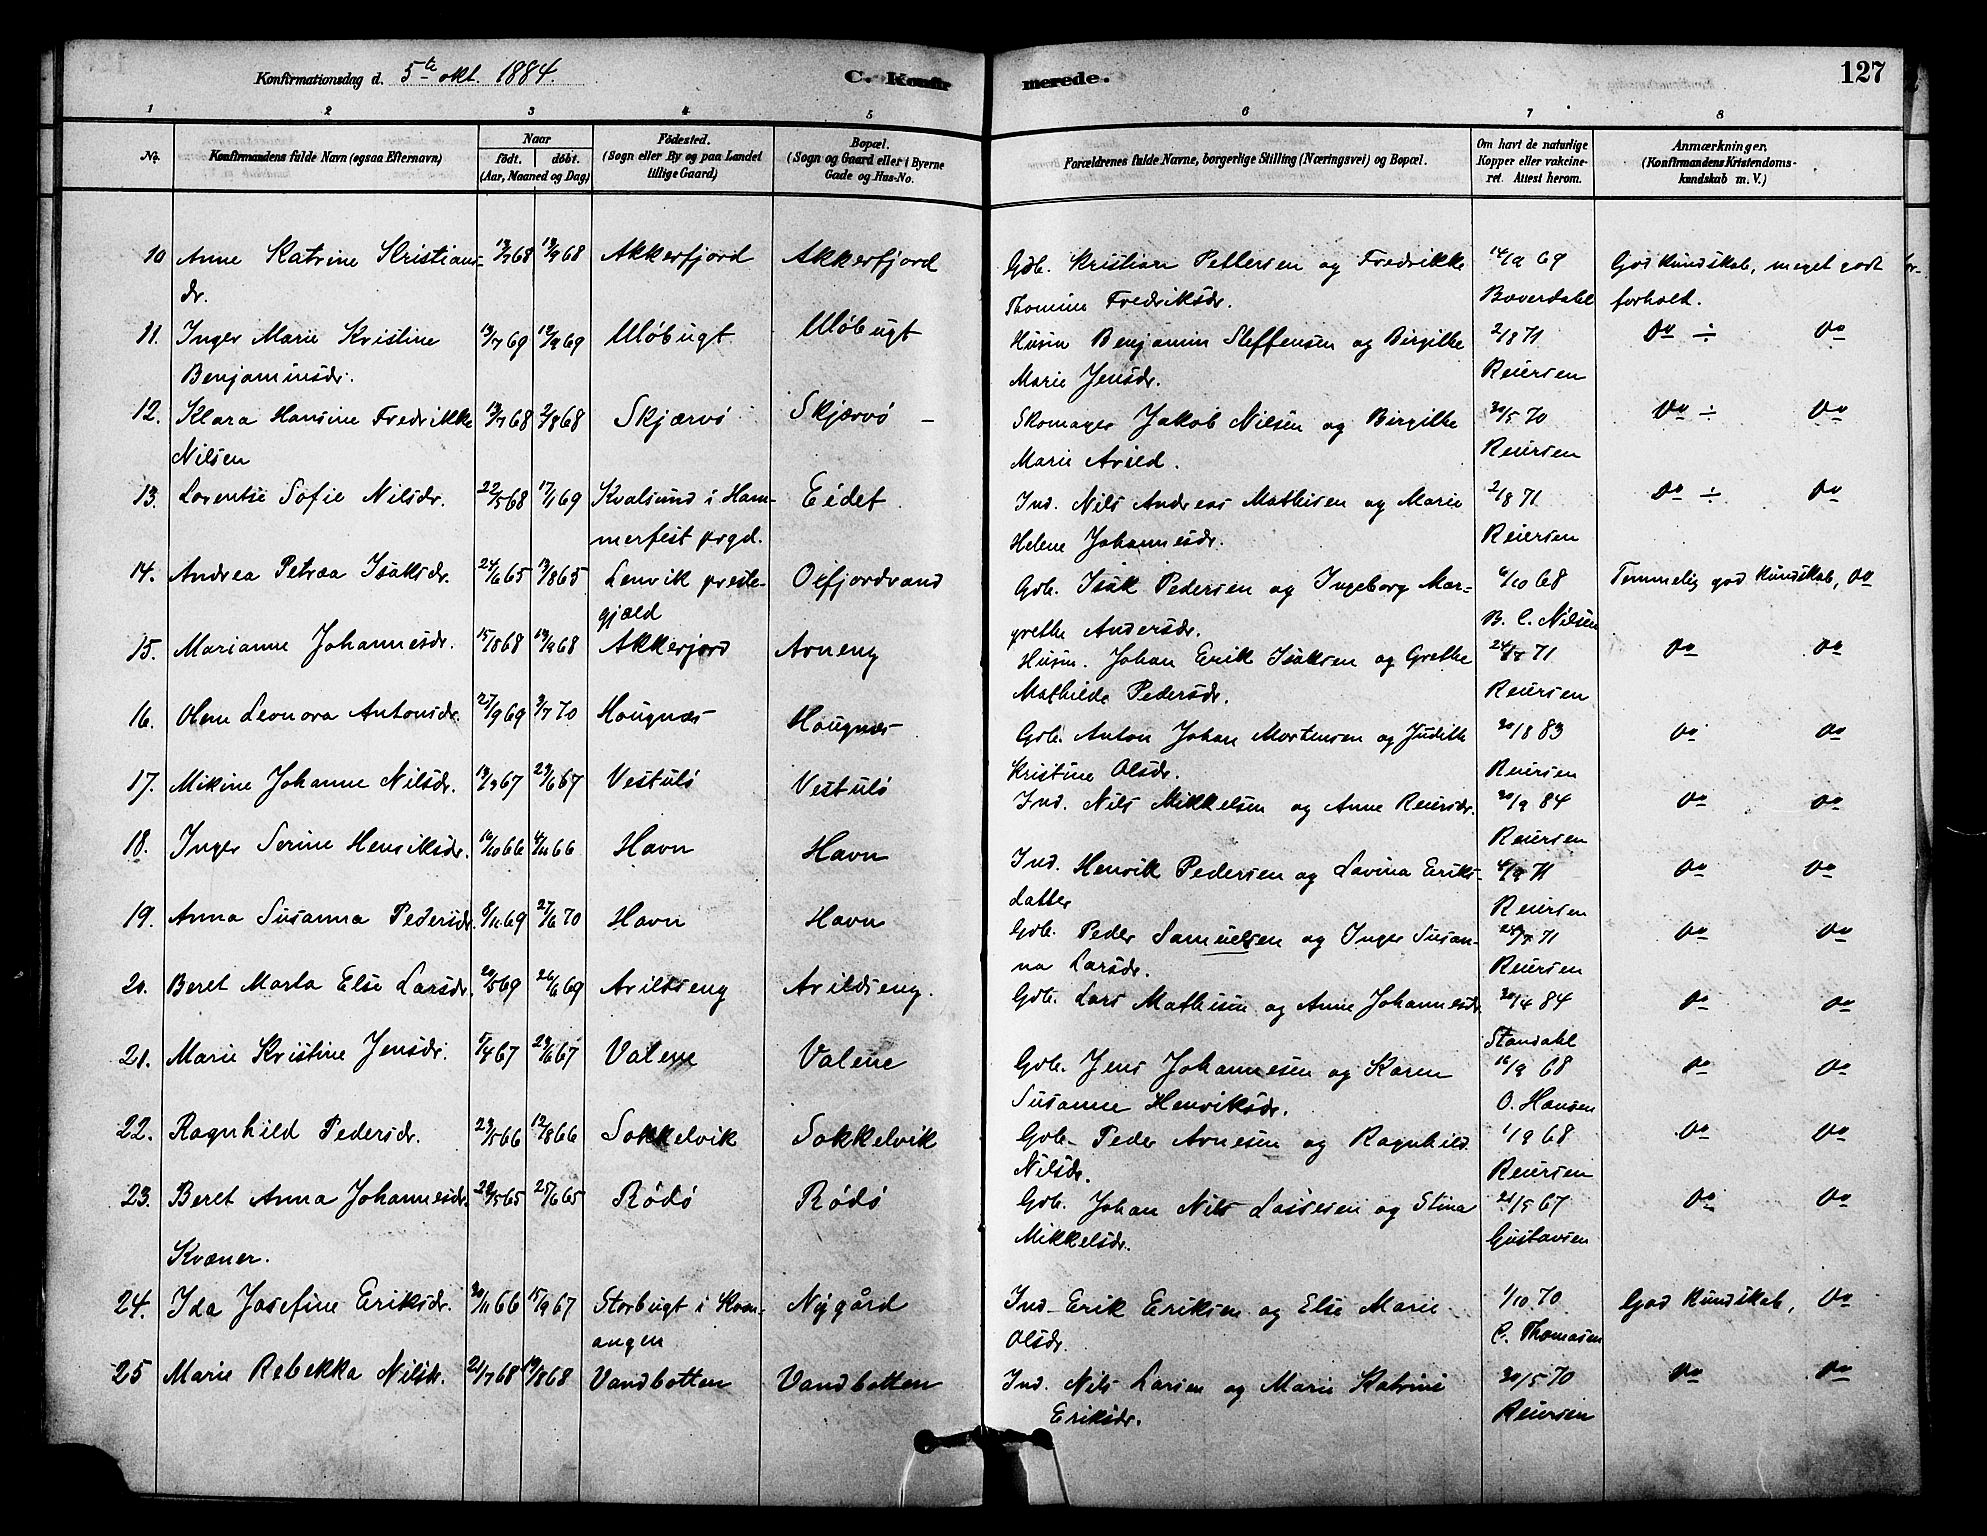 Konfirmationsdag d. 5te okt. 1884.
C. Konfirmerede.
127
1 2 3 4 5 6 7 8
No.
Konfirmandens fulde Navn (ogsaa Efternavn)
Naar
født. døbt.
(Aar, Maaned og Dag)
Fødested.
(Sogn eller By og paa Landet
tillige Gaard)
Bopæl.
(Sogn og Gaard eller i Byerne
Gade og Hus-No.
Forældrenes fulde Navne, borgerlige Stilling (Næringsvei) og Bopæl.
Om havt de naturlige
Kopper eller vakcine-
ret. Attest herom.
Anmærkninger.
(Konfirmandens Kristendoms-
kundskab m. V.)
10 Anne Katrine Kristians- 13/7 68 13/9 68 Akkerfjord Akkerfjord Gdb. Kristian Pettersen og Fredrikke 14/9 69 God kundskab, meget godt for-
dr. Thomine Fredriksdr. Baverdahl forholt.
11. Inger Marie Kristine 13/7 69 12/9 69 Uløbugt Uløbugt Husm Benjamin Steffensen og Birgithe 2/8 71 Do ÷ Do
Benjaminsdr. Marie Jensdr. Reiersen
12. Klara Hansine Fredrikke 13/7 68 2/8 68 Skjærvö Skjærvö – Skomager Jakob Nilsen og Birgithe 30/5 70 Do ÷ Do
Nilsen Marie Arild. Reiersen
13. Lorentse Sofie Nilsdr. 22/5 68 17/1 69 Kvalsund i Ham- Eidet. Ind. Nils Andreas Mathisen og Marie 2/8 71 Do ÷ Do
merfest prgd. Helene Johannesdr. Reiersen
14. Andrea Petrea Isaksdr. 24/6 65 13/8 65 Lenvik preste- Oxfjordvand Gdb. Isak Pedersen og Ingeborg Mar- 6/10 68 Temmelig god kundskab, Do
gjæld grethe Andersdr. B. C. Nilsen
15. Marianne Johannesdr. 15/8 68 13/9 68 Akkerjord Arneng Husm. Johan Erik Isaksen og Grethe 24/7 71 Do Do
Mathilde Pedersdr. Reiersen
16. Oline Leonora Antonsdr. 27/9 69 3/7 70 Hougnæs Hougnæs Gdb. Anton Johan Mortensen og Judith 30/8 83 Do Do
Kristine Olsdr. Reiersen
17. Mikine Johanne Nilsdr. 13/3 67 23/6 67 Vestulö Vestulö Ind. Nils Mikkelsen og Anne Reiersdr. 30/9 84 Do Do
Reiersen
18. Inger Serine Henriksdr. 16/10 66 4/11 66 Havn Havn Ind. Henrik Pedersen og Lavina Eriks- 4/9 71 Do Do
datter Reiersen
19. Anna Susanna Pedersdr. 8/11 69 27/6 70 Havn Havn Gdb. Peder Samuelsen og Inger Susan- 24/7 71 Do Do
na Larsdr. Reiersen
20. Beret Marta Else Larsdr. 20/5 69 26/6 69 Arildseng Arildseng. Gdb. Lars Mathisen og Anne Johannesdr. 30/4 84 Do Do
Standahl
21. Marie Kristine Jensdr. 5/4 67 23/6 67 Valene Valene Gdb. Jens Johannesen og Karen 16/9 68 Do Do
Susanne Henriksdr. O. Hansen
22. Ragnhild Pedersdr. 23/5 66 12/8 66 Sokkelvik Sokkelvik Gdb. Peder Arnesen og Ragnhild 1/9 68 Do Do
Nilsdr. Reiersen
23. Beret Anna Johannesdr. 28/5 65 25/6 65 Rödö Rödö Gdb. Johan Nils Lassesen og Stina 21/5 67 Do Do
Kvæner. Mikkelsdr. Gustavsen
24. Ida Josefine Eriksdr. 30/11 66 15/9 67 Storbugt i Kvæn- Nygård Ind. Erik Eriksen og Else Marie 1/10 70 God kundskab, Do
angen Olsdr. C. Thomasen
25 Marie Rebekka Nilsdr. 21/7 68 19/8 68 Vandbotten Vandbotten Ind. Nils Larsen og Marie Katrine 30/5 70 Do Do
Eriksdr. Reiersen